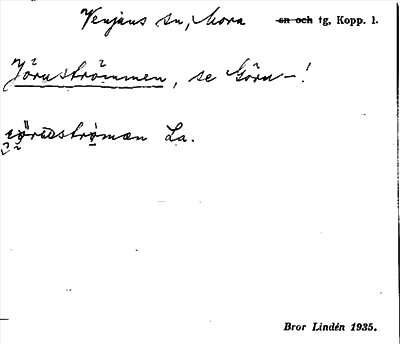 Venjans sn, Mora sn och tg, Kopp. l.
Jöruströmmen, se Görn-!
La.
Bror Lindén 1935.